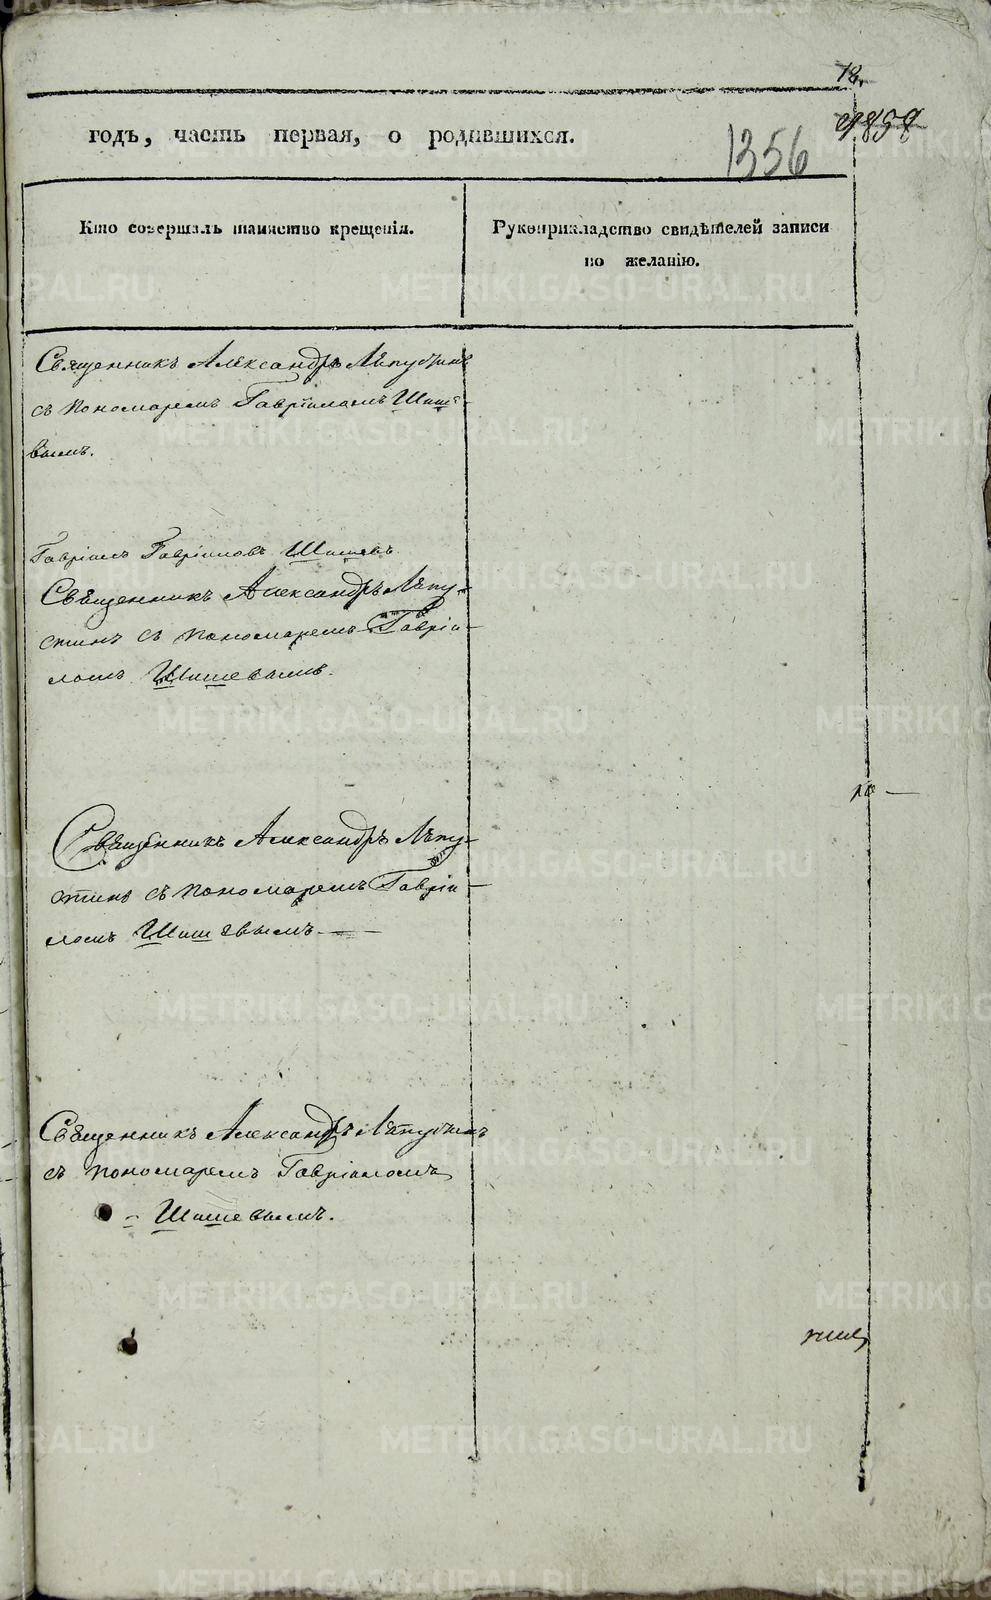 18.
1859
годъ, часть первая, о родившихся.
1356
Кто совершалъ таинство крещенія.
Рукоприкладство свидѣтелей записи
по желанію.
Священникъ Александръ Лѣпустинъ
съ пономаремъ Гавріиломъ Шише-
вымъ.
Гавріилъ Гавріиловъ Шишевъ.
Священникъ Александръ Лѣпу-
стинъ съ пономаремъ Гаврiи-
ломъ Шишевымъ.
Священникъ Александръ Лѣпу-
стинъ съ пономаремъ Гавріи-
ломъ Шишевымъ
Священникъ Александръ Лѣпустинъ
съ пономаремъ Гавріиломъ
Шишевымъ.
METRIKI.GASO-URAL.RU